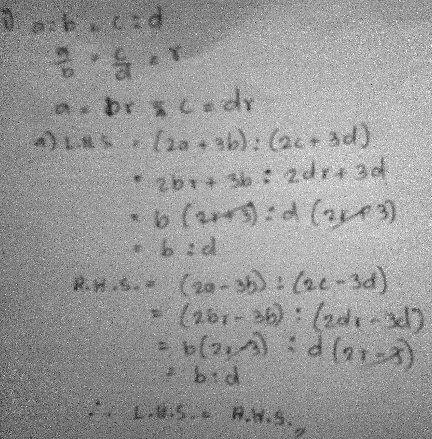 1) a:b = c:d
a/b = c/d = r
a = br & c = dr
a) L.H.S. = (2a + 3b) : (2c + 3d)
= 2br + 3b : 2dr + 3d
= b (2r+3) : d (2r+3)
= b : d
R.H.S. = (2a - 3b) : (2c - 3d)
= (2br - 3b) : (2dr - 3d)
= b(2r-3) : d(2r-3)
= b:d
∴ L.H.S. = R.H.S.